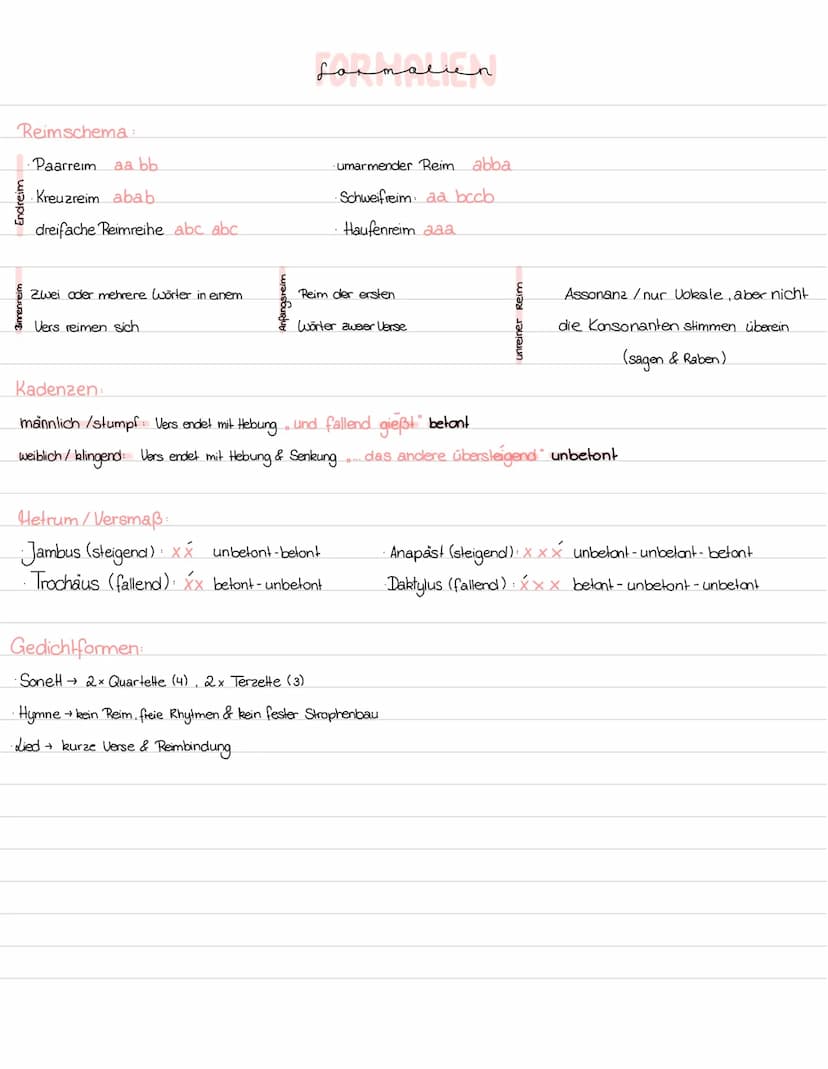 FORMALIEN
formalien
Reimschema:
Endreim
· Paarreim aa bb
· umarmender Reim abba
· Kreuzreim abab
· Schweifreim: aa bccb
dreifache Reimreihe abc abc
· Haufenreim aaa
Innenreim
Zwei oder mehrere Wörter in einem
Vers reimen sich
Anfangsreim
Reim der ersten
Wörter zweier Verse
unreiner Reim
Assonanz / nur Vokale, aber nicht
die Konsonanten stimmen überein
(sagen & Raben)
Kadenzen:
männlich / stumpf: Vers endet mit Hebung „und fallend gießt" betont
weiblich / klingend: Vers endet mit Hebung & Senkung „... das andere übersteigend" unbetont
Metrum / Versmaß:
· Jambus (steigend): x x́ unbetont-betont
· Anapäst (steigend): x x x́ unbetont-unbetont-betont
· Trochäus (fallend): x́ x betont-unbetont
· Daktylus (fallend): x́ x x betont-unbetont-unbetont
Gedichtformen:
· Sonett → 2x Quartette (4), 2x Terzette (3)
· Hymne → kein Reim, freie Rhytmen & kein fester Strophenbau
· Lied → kurze Verse & Reimbindung